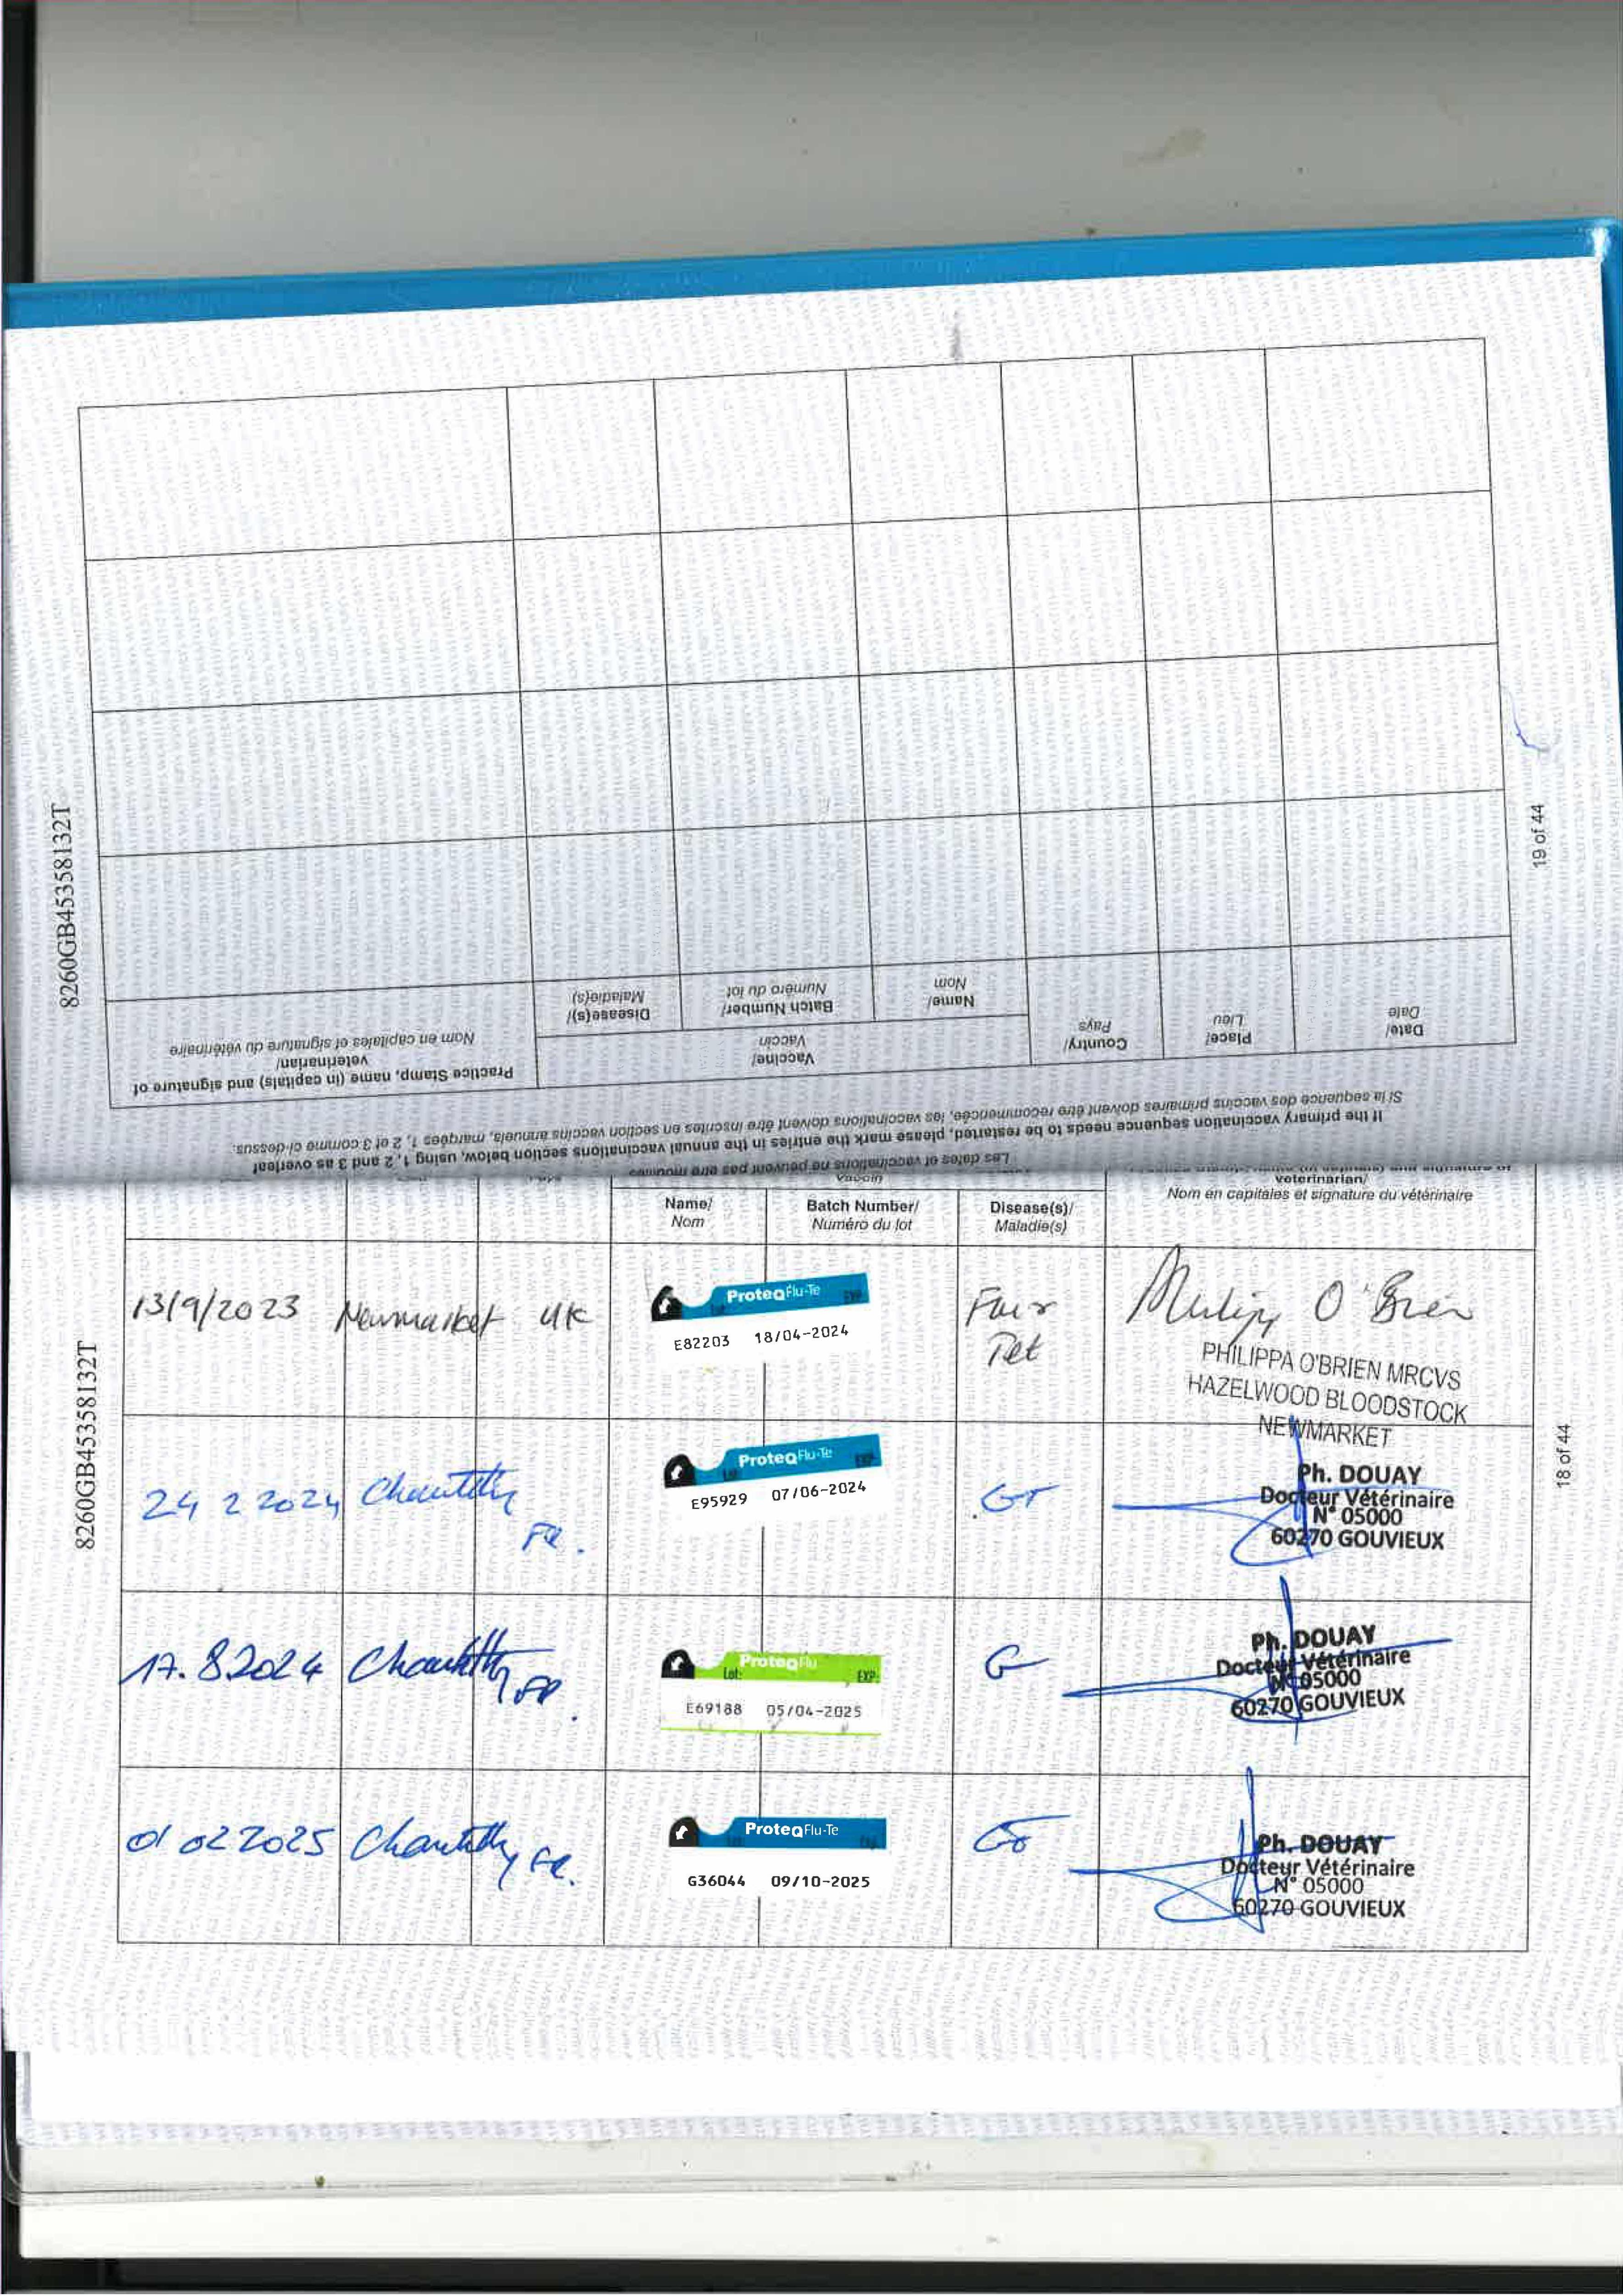 8260GB45358132T
19 of 44
Les dates et vaccinations ne peuvent pas être
If the primary vaccination sequence needs to be restarted, please mark the entries in the annual vaccinations section below, using 1, 2 and 3 as overleaf
Si la sequence des vaccins primaires doivent être recommencée, les vaccinations doivent être inscrites en section vaccins annuels, marquées 1, 2 et 3 comme ci-dessus.
Date/ Date
Place/ Lieu
Country/ Pays
Vaccine/ Vaccin
Name/ Nom
Batch Number/ Numéro du lot
Disease(s)/ Maladie(s)
Practice Stamp, name (in capitals) and signature of veterinarian/
Nom en capitales et signature du vétérinaire
8260GB45358132T
18 of 44
Name/ Nom
Batch Number/ Numéro du lot
Disease(s)/ Maladie(s)
veterinarian/
Nom en capitales et signature du vétérinaire
13/9/2023 Newmarket UK
ProteqFlu-Te
E82203 18/04-2024
Tet
O'Brien
PHILIPPA O'BRIEN MRCVS
HAZELWOOD BLOODSTOCK
NEWMARKET
24 2 2024 Chantilly FR.
ProteqFlu-Te
Lot: EXP:
E95929 07/06-2024
GT
Ph. DOUAY
Docteur Vétérinaire
N° 05000
60270 GOUVIEUX
17.8 2024 Chantilly FR.
ProteqFlu
Lot: EXP:
E69188 05/04-2025
G
Ph. DOUAY
Docteur Vétérinaire
N° 05000
60270 GOUVIEUX
01 02 2025 Chantilly FR.
ProteqFlu-Te
G36044 09/10-2025
Ph. DOUAY
Docteur Vétérinaire
N° 05000
60270 GOUVIEUX